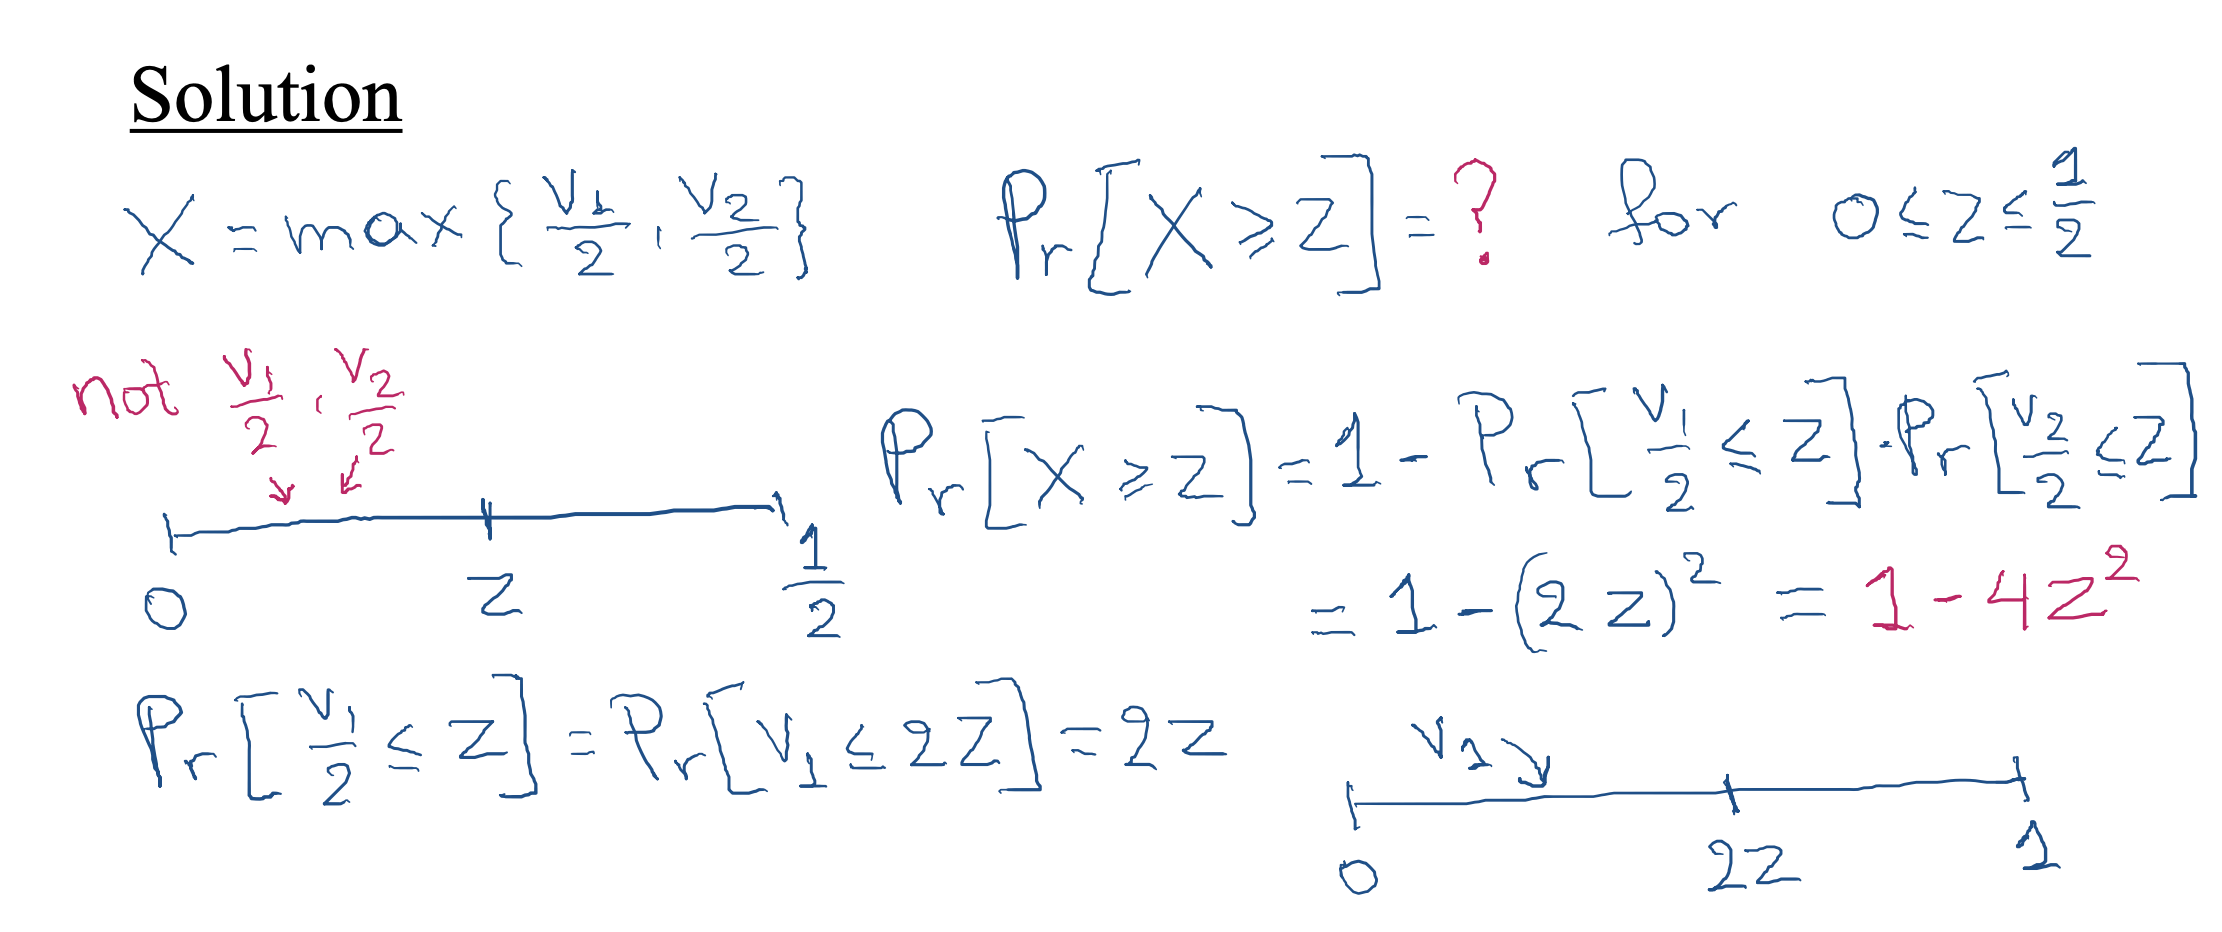 Solution
X = max { V₁/2 , V₂/2 } Pr[X ≥ Z] = ? for 0 ≤ Z ≤ 1/2
not V₁/2 , V₂/2
Pr[X ≥ Z] = 1 - Pr[V₁/2 ≤ Z] · Pr[V₂/2 ≤ Z]
0 Z 1/2
= 1 - (2Z)² = 1 - 4Z²
Pr[V₁/2 ≤ Z] = Pr[V₁ ≤ 2Z] = 2Z
V₁
0 2Z 1